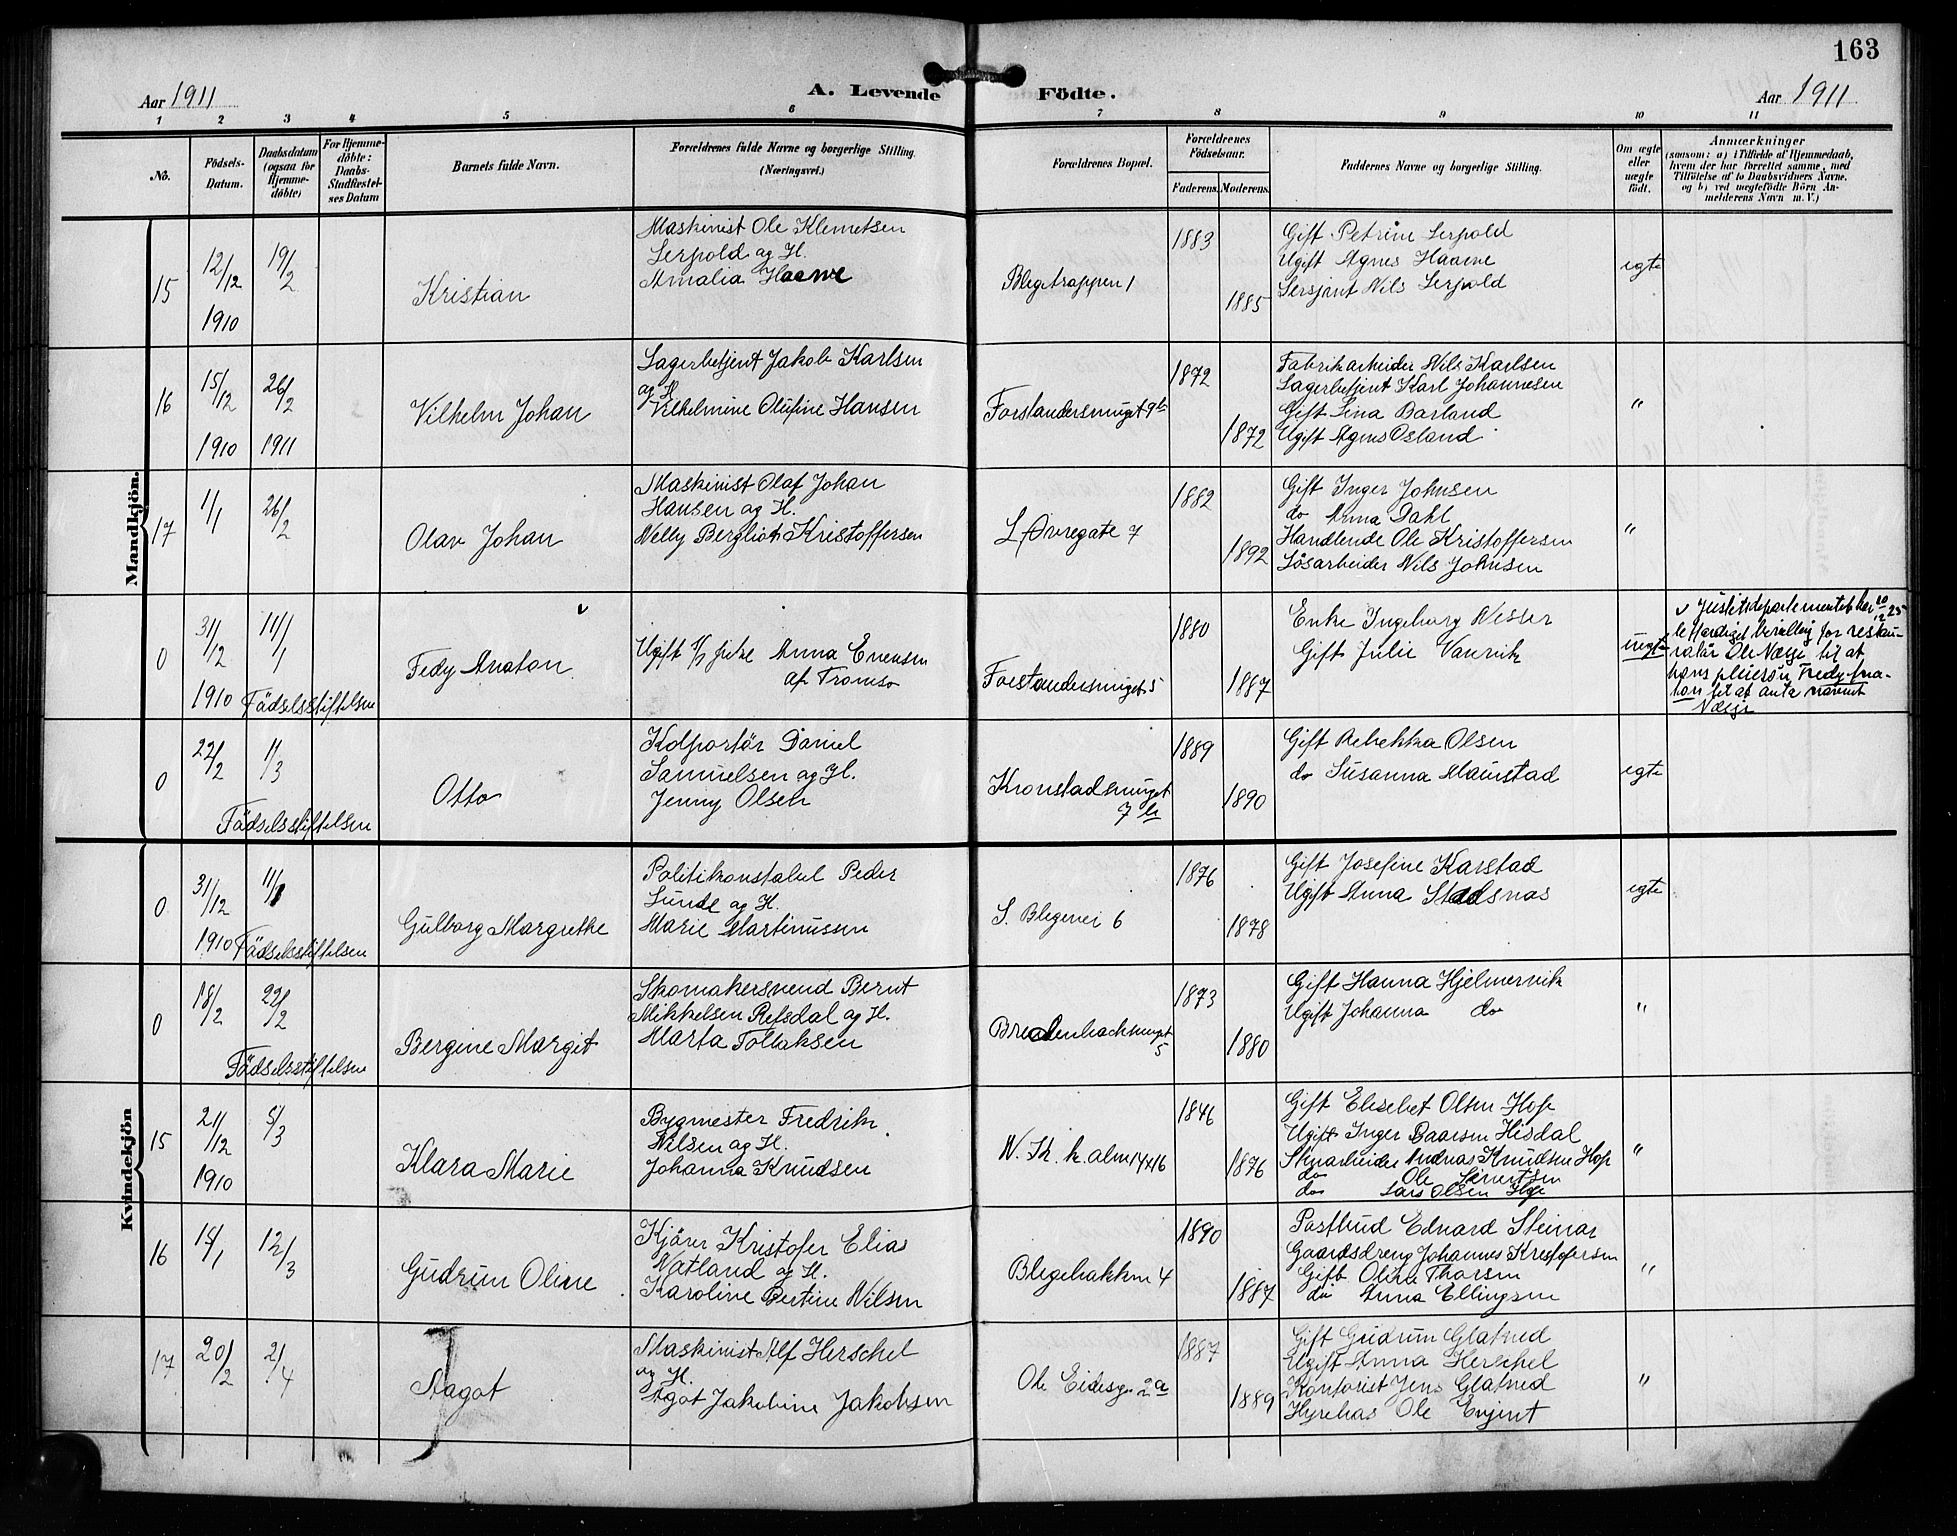 163
Aar 1911
A. Levende Födte.
Aar 1911
1 2 3 4 5 6 7 8 9 10 11
No.
Födsels-Datum.
Daabsdatum (ogsaa for Hjemme-döbte)
For Hjemme-döbte: Daabs-Stadfæstel-ses Datum
Barnets fulde Navn.
Forældrenes fulde Navne og borgerlige Stilling.
(Næringsvei.)
Forældrenes Bopæl.
Forældrenes Födselsaar.
Faderens. Moderens.
Faddernes Navne og borgerlige Stilling.
Om ægte eller uægte födt.
Anmærkninger
(saasom: a) i Tilfælde af Hjemmedaab,
hvem der har forrettet samme, med
Tilföielse af to Daabsvidners Navne,
og b) ved uægtefödte Börn An-
melderens Navn m. V.)
Mandkjön.
15 12/12 1910 19/2
Kristian
Maskinist Ole Klemetsen
Serpold og H.
Amalia Haave
Blegetrappen 1
1883
1885
Gift Petrine Serpold
Ugift Agnes Haave
Sersjant Nils Serpold
egte
16 15/12 1910 26/2 1911
Vilhelm Johan
Lagerbetjent Jakob Karlsen
og H.
Vilhelmine Olufine Hansen
Forstandersmuget 9b
1872
1872
Fabrikarbeider Nils Karlsen
Lagerbetjent Karl Johannesen
Gift Lina Barland
Ugift Agnes Osland
"
17 1/1 26/2
Olav Johan
Maskinist Olaf Johan
Hansen og H.
Nelly Bergliot Kristoffersen
L. Øvregate 7
1882
1892
Gift Inger Johnsen
do Anna Dahl
Handlende Ole Kristoffersen
Løsarbeider Nils Johnsen
"
0 31/12 1910 11/1
Födselsstiftelsen
Fedy Anaton
Ugift Anna Evensen
af Tromsø
Forstandersmuget 5
1880
1887
Enke Ingeborg Nesser
Gift Julie Vanvik
uegte
v Justitsdepartementet har 10/12 25
bevilling for restau-
ratør Ole Næsje til at
hans pleiesøn Fredy Ana-
ton til at anta navnet
Næsje
0 22/2 1/3
Födselsstiftelsen
Otto
Kolportör Daniel
Samuelsen og H.
Jenny Olsen
Kronstadsmuget
7 b
1889
1890
Gift Rebekka Olsen
do Susanna Maurstad
egte
Kvindekjön
0 31/12 1910 11/1
Födselsstiftelsen
Gulborg Margrethe
Politikonstabel Peder
Sunde og H.
Marie Martinussen
S. Blegevei 6
1876
1878
Gift Josefine Karstad
Ugift Anna Stadsnas
egte
0 18/2 22/2
Födselsstiftelsen
Bergine Margit
Skomakersvend Bernt
Mikkelsen Refsdal og H.
Marta Tollaksen
Bredenbachsmuget
5
1873
1880
Gift Hanna Hjelmervik
Ugift Johanna do
"
15 21/12 1910 5/3
Klara Marie
Bygmester Fredrik
Nilsen og H.
Johanna Knudsen
N. St. k. alm 14+16
1846
1876
Gift Elisebet Olsen Hop
Ugift Inger Baarsen Hisdal
Skoarbeider Andreas Knudsen Hop
do Ole Sjurtsen
do Lars Olsen Hop
"
16 14/1 12/3
Gudrun Oline
Kjörer Kristofer Elias
Natland og H.
Karoline Bertine Nilsen
Blegebakken 4
1890
1887
Postbud Edvard Steinar
Gaardsdreng Johannes Kristofersen
Gift Oline Thorsen
do Anna Ellingsen
"
17 20/2 2/4
Aagot
Maskinist Alf Herschel
og H.
Agot Jakobine Jakobsen
Ole Eidesg. 2a
1887
1889
Gift Gudrun Glatved
Ugift Anna Herschel
Kontorist Jens Glatved
Hyrebas Ole Evjent
"